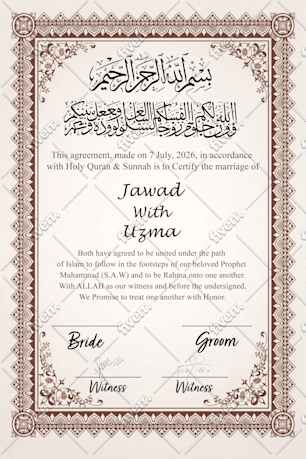 بسم الله الرحمن الرحيم
This agreement, made on 7 July, 2026, in accordance
with Holy Quran & Sunnah is to Certify the marriage of
Jawad
With
Uzma
Both have agreed to be united under the path
of Islam to follow in the footsteps of our beloved Prophet
Muhammad (S.A.W) and to be Rahma onto one another.
With ALLAH as our witness and before the undersigned,
We Promise to treat one another with Honor.
Bride
Groom
Witness
Witness
fiverr.